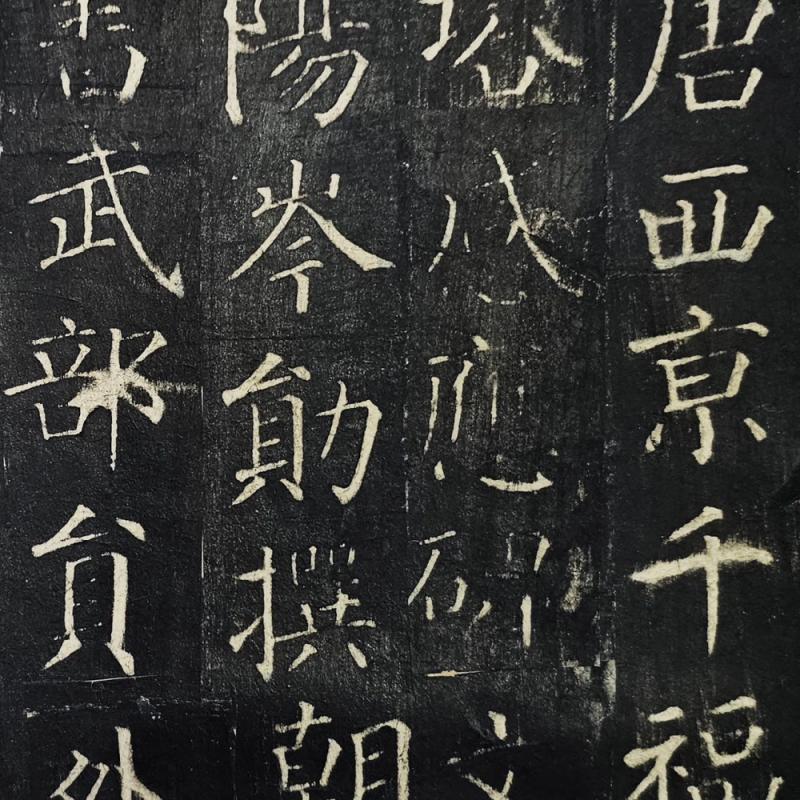 唐西亰千福
塔感應碑文
陽岑勛撰朝
書武部貟外